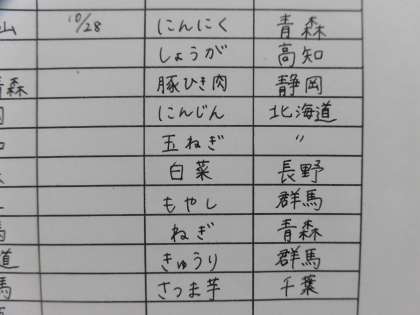 山 10/28 にんにく 青森
しょうが 高知
青森 豚ひき肉 静岡
にんじん 北海道
玉ねぎ 〃
白菜 長野
もやし 群馬
ねぎ 青森
道 きゅうり 群馬
馬 さつま芋 千葉